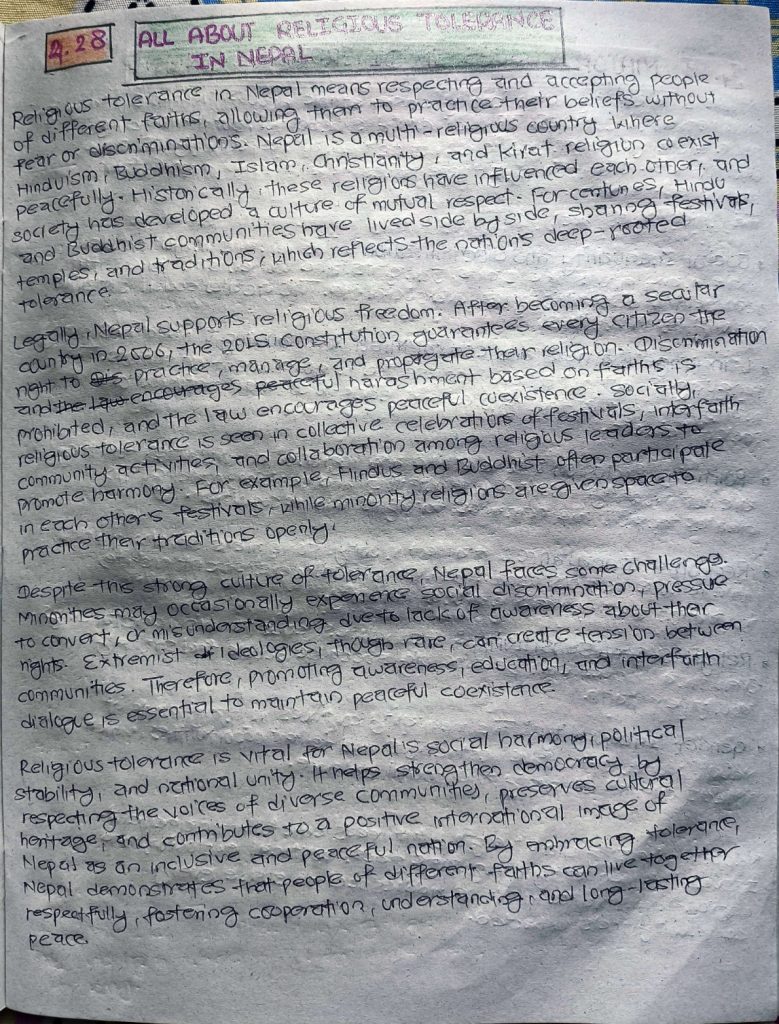 2.28
ALL ABOUT RELIGIOUS TOLERANCE
IN NEPAL
Religious tolerance in Nepal means respecting and accepting people
of different faiths, allowing them to practice their beliefs without
fear or discriminations. Nepal is a multi-religious country where
Hinduism, Buddhism, Islam, Christianity, and Kirat religion coexist
peacefully. Historically, these religions have influenced each other, and
society has developed a culture of mutual respect. For centuries, Hindu
and Buddhist communities have lived side by side, sharing festivals,
temples, and traditions, which reflects the nation's deep-rooted
tolerance.
Legally, Nepal supports religious freedom. After becoming a secular
country in 2006, the 2015 Constitution guarantees every citizen the
right to practice, manage, and propagate their religion. Discrimination
and the law encourages peaceful harashment based on faiths is
prohibited, and the law encourages peaceful coexistence. Socially,
religious tolerance is seen in collective celebrations of festivals, interfaith
community activities, and collaboration among religious leaders to
promote harmony. For example, Hindus and Buddhist often participate
in each other's festivals, while minority religions are given space to
practice their traditions openly.
Despite this strong culture of tolerance, Nepal faces some challenge.
Minorities may occasionally experience social discrimination, pressue
to convert, or misunderstanding due to lack of awareness about their
rights. Extremist ideologies, though rare, can create tension between
communities. Therefore, promoting awareness, education, and interfaith
dialogue is essential to maintain peaceful coexistence.
Religious tolerance is vital for Nepal's social harmony, political
stability, and national unity. It helps strengthen democracy by
respecting the voices of diverse communities, preserves cultural
heritage, and contributes to a positive international image of
Nepal as an inclusive and peaceful nation. By embracing tolerance,
Nepal demonstrates that people of different faiths can live together
respectfully, fostering cooperation, understanding, and long-lasting
peace.